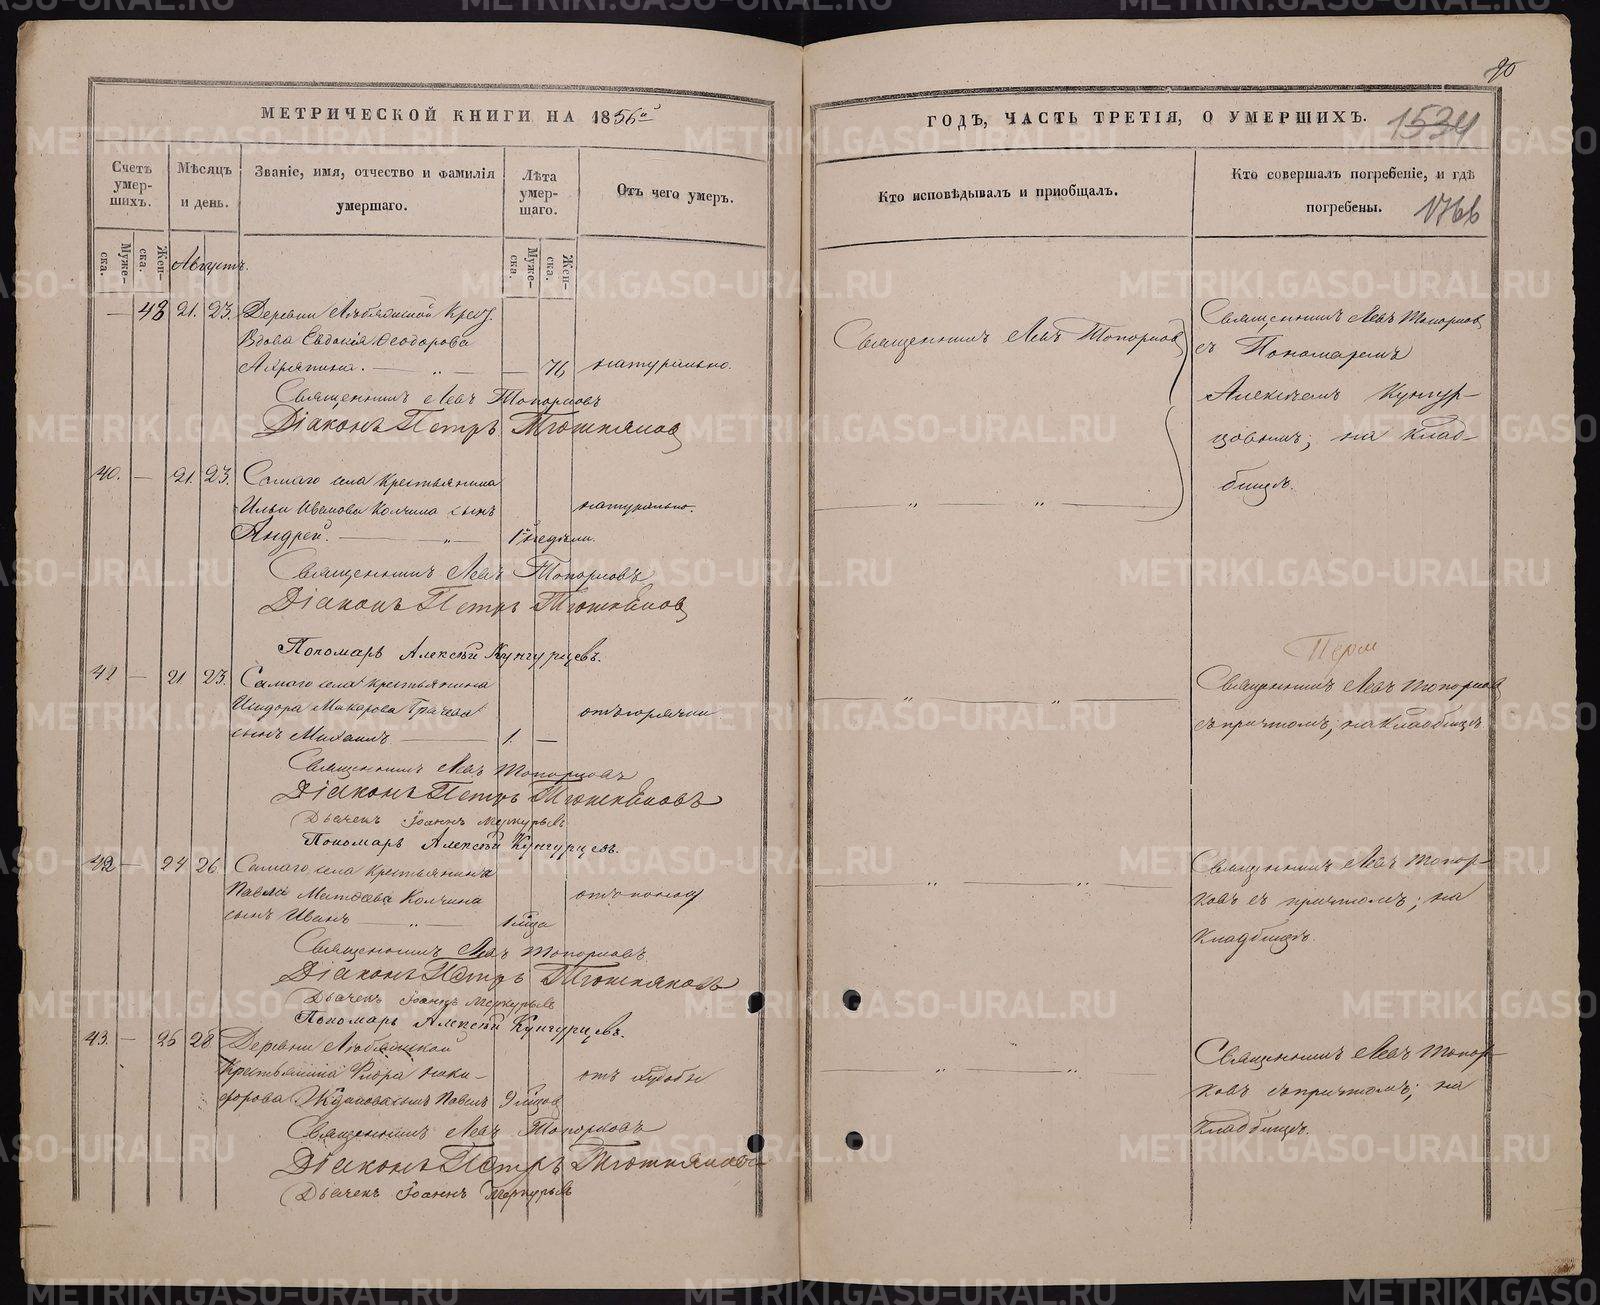 МЕТРИЧЕСКОЙ КНИГИ НА 1856й
Счетъ умер-шихъ.
Мѣсяцъ и день.
Званіе, имя, отчество и фамилія умершаго.
Лѣта умер-шаго.
Отъ чего умеръ.
Муже-ска.
Жен-ска.
Муже-ска.
Жен-ска.
Августъ.
— 48 21. 23. Деревни
Вдова Евдокія Ѳеодорова
76 натурально.
Священникъ Левъ Топорковъ
Діаконъ Петръ Тюшняковъ
40. — 21. 23. Самаго села крестьянина
Ильи Иванова Колчина сынъ натурально.
Андрей. 1 недѣли.
Священникъ Левъ Топорковъ
Діаконъ Петръ Тюшняковъ
Пономарь Алексѣй Кунгурцевъ.
41 — 21 23. Самаго села крестьянина
Исидора Макарова Грачева отъ горячки
сынъ Михаилъ 1. —
Священникъ Левъ Топорковъ
Діаконъ Петръ Тюшняковъ
Дьячекъ Іоаннъ Меркурьевъ
Пономарь Алексѣй Кунгурцевъ.
42 — 24 26. Самаго села крестьянина
Павла Матѳеева Колчина отъ поносу
сынъ Иванъ 1 мѣсца
Священникъ Левъ Топорковъ
Діаконъ Петръ Тюшняковъ
Дьячекъ Іоаннъ Меркурьевъ
Пономарь Алексѣй Кунгурцевъ.
43. — 26 28 Деревни
Крестьянина Флора Ники- отъ худобы
форова сынъ Павелъ 9 мѣсцов
Священникъ Левъ Топорковъ
Діаконъ Петръ Тюшняковъ
Дьячекъ Іоаннъ Меркурьевъ
90
ГОДЪ, ЧАСТЬ ТРЕТІЯ, О УМЕРШИХЪ.
1534
Кто исповѣдывалъ и пріобщалъ.
Кто совершалъ погребеніе, и гдѣ погребены.
1766
Священникъ Левъ Топорковъ
Священникъ Левъ Топорковъ
съ Пономаремъ
Алексѣемъ Кунгур-
цовымъ; на клад-
бищѣ.
Священникъ Левъ Топорковъ
съ причтомъ; на кладбищѣ.
Священникъ Левъ Топор-
ковъ съ причтомъ; на
кладбищѣ.
Священникъ Левъ Топор-
ковъ съ причтомъ; на
кладбищѣ.
METRIKI.GASO-URAL.RU